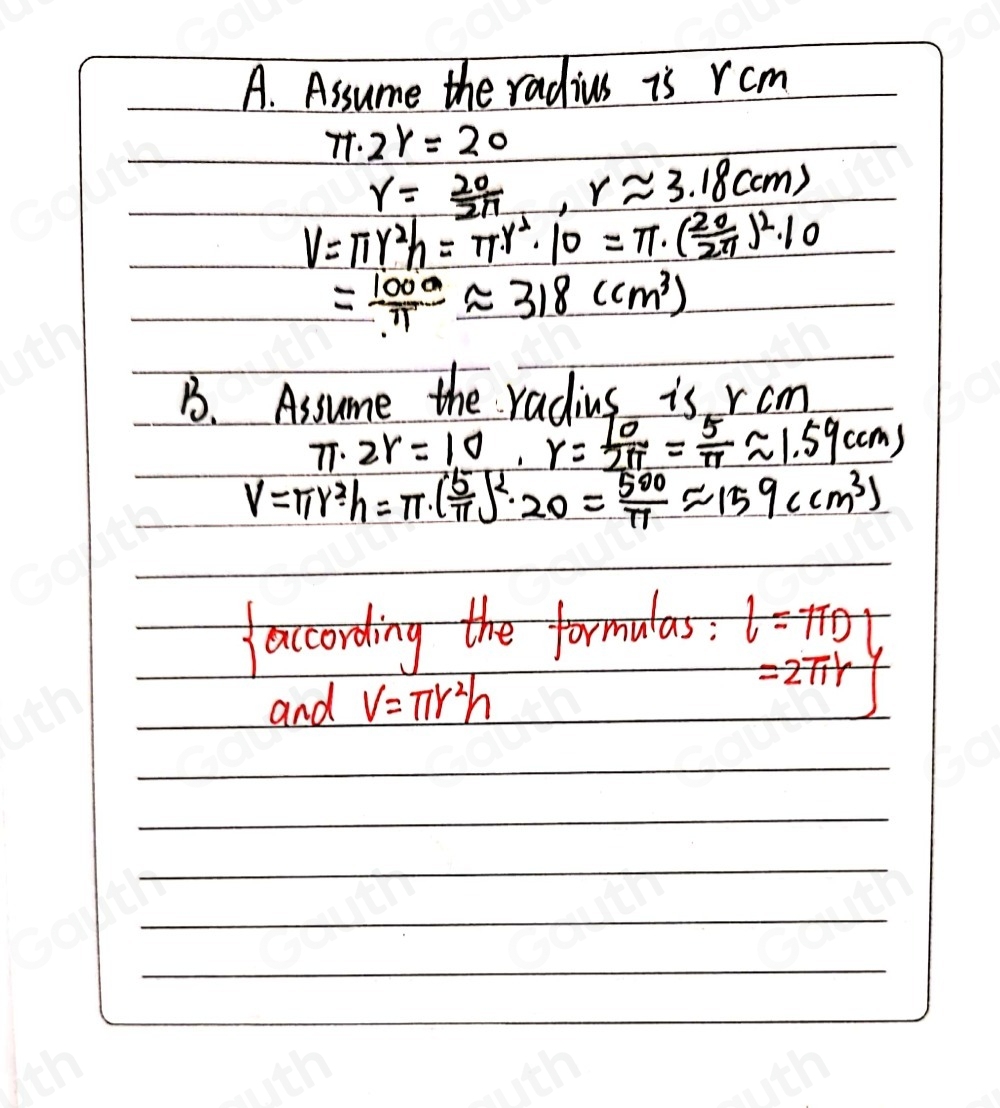 A. Assume the radius is r cm
π·2r = 20
r = 20/2π , r ≈ 3.18 (cm)
V = πr²h = π·r²·10 = π·(20/2π)²·10
= 1000/π ≈ 318 (cm³)
B. Assume the radius is r cm
π·2r = 10 . r = 10/2π = 5/π ≈ 1.59 (cm)
V = πr²h = π·(5/π)²·20 = 500/π ≈ 159 (cm³)
{according the formulas: l = πD
= 2πr}
and V = πr²h